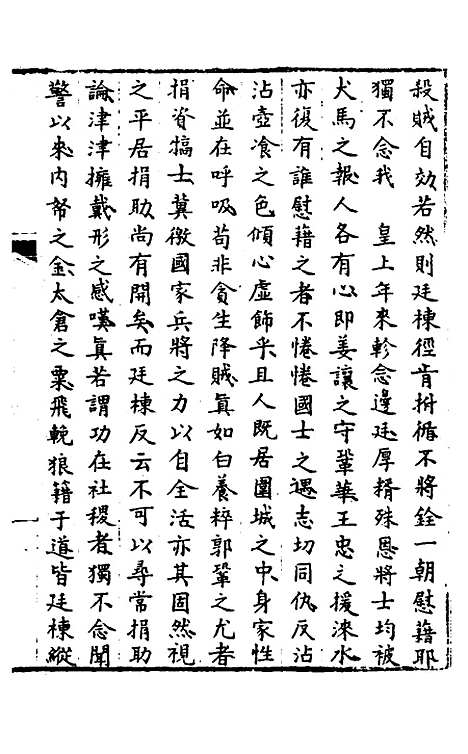 殺賊自効若然則廷棟徑肯拊循不將銓一朝慰藉耶
獨不念我　皇上年來軫念邊廷厚糈殊恩將士均被
犬馬之報人各有心即姜讓之守鞏華王忠之援淶水
亦復有誰慰藉之者不惓惓國士之遇志切同仇反沾
沾壺飡之色傾心虛飾乎且人既居圍城之中身家性
命並在呼吸苟非貪生降賊眞如白養粹郭鞏之尤者
捐資犒士冀徼國家兵將之力以自全活亦其固然視
之平居捐助尚有間矣而廷棟反云不可以尋常捐助
論津津擁戴形之感嘆眞若謂功在社稷者獨不念聞
警以來內帑之金太倉之粟飛輓狼籍于道皆廷棟縱
一